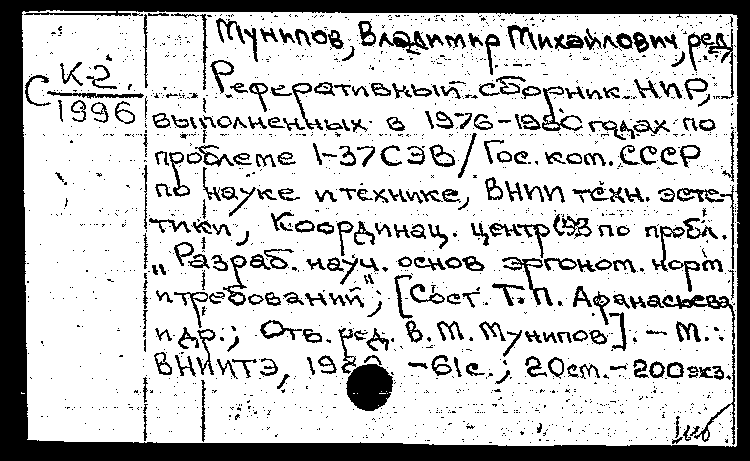 Мунипов, Владимир Михайлович, ред.
С К-2.
1996
Реферативный сборник НИР,
выполненных в 1976-1980 годах по
проблеме 1-37СЭВ/Гос. ком. СССР
по науке и технике, ВНИИ техн. эсте-
тики, Координац. центр СЭВ по пробл.
„Разраб. науч. основ эргоном. норм
и требований"; [Сост. Т. П. Афанасьева
и др.; Отв. ред. В. М. Мунипов]. - М.:
ВНИИТЭ, - 61с.; 20см. - 200экз.